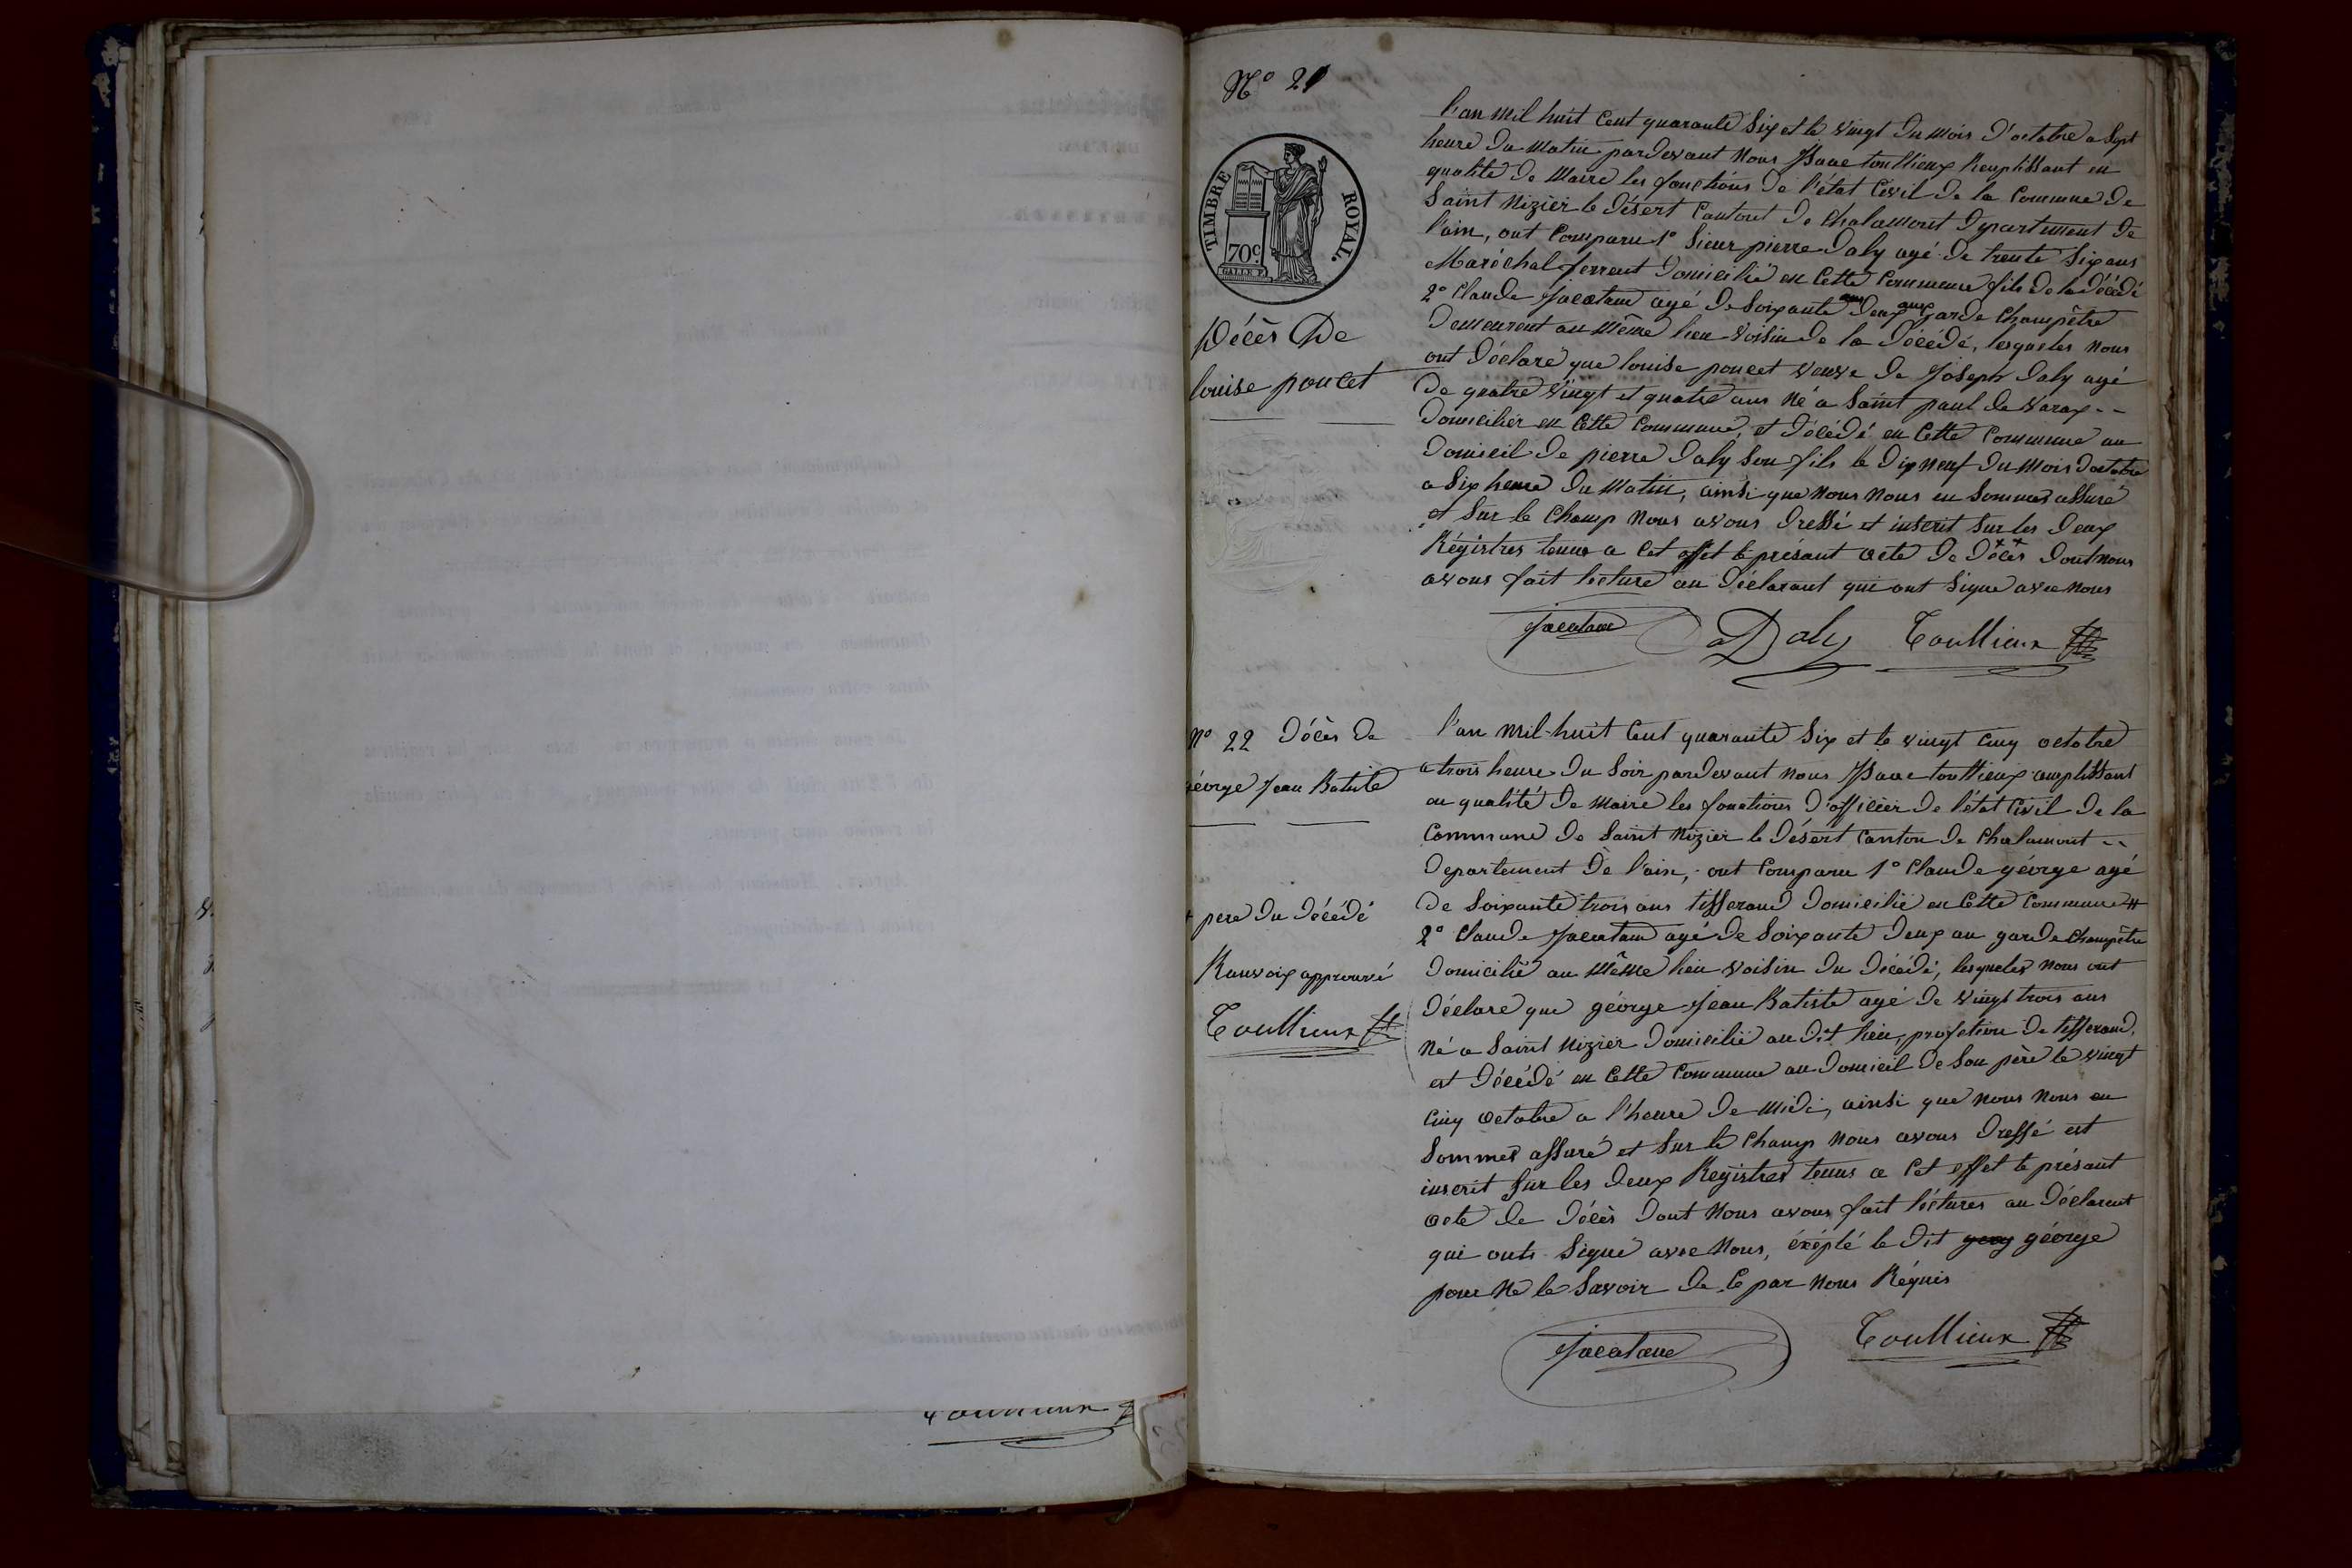 N° 21
TIMBRE ROYAL.
70c.
GALLE F.
Décès De
louise poncet
l'an mil huit Cent quarante Six et le vingt du mois D'octobre a Sept
heure Du Matin pardevant Nous Isaac toullieux Remplissant en
qualité De Maire les fonctions De l'état Civil De la Commune De
Saint Nizier le Désert Cantont De Chalamont Département De
l'ain, ont Comparu 1° Sieur pierre Daly agé De trente Six ans
Maréchal ferrent Domicilié en Cette Commune fils De la Décédé
2° Claude Jacatane agé De Soixante Deux ans garde Champêtre
Demeurent au Même lieu Voisin De la Décédé, lesqueles Nous
ont Déclaré que louise poncet veuve De Joseph Daly agé
De quatre Vingt et quatre ans Né a Saint paul De Varax --
Domicilier en Cette Commune, et Décédé en Cette Commune au
Domicil De pierre Daly Son fils le Dix Neuf Du Mois Doctobre
a Six heure Du Matin, ainsi que Nous Nous en Sommes assuré
et Sur le Champ Nous avons Dressé et inscrit Sur les Deux
Régistres tenus a Cet effet le présant acte De Décès Dont Nous
avons fait lecture au Déclarant qui ont Signé avec Nous
Jacatane Daly Toullieux
N° 22 Décès De
géorge Jean Batiste
l'an mil-huit Cent quarante Six et le vingt Cinq octobre
a trois heure Du Soir pardevant Nous Isaac toullieux remplissant
en qualité De Maire les fonctions D'officier De l'état Civil De la
Commune De Saint Nizier le Désert Canton De Chalamont --
Departement De l'ain, ont Comparu 1° Claude géorge agé
De Soixante trois ans tisserand Domicilié en Cette Commune #
2° Claude Jacatane agé De Soixante Deux an garde Champêtre
Domicilié au Même lieu Voisin Du Décédé, lesqueles Nous ont
Déclaré que géorge Jean Batiste agé De Vingt trois ans
Né a Saint Nizier Domicilié au Dit lieu, profetion De tisserand,
est Décédé en Cette Commune au Domicil De Son père le Vingt
Cinq Octobre a l'heure De Midi, ainsi que Nous Nous en
Sommes assuré et Sur le Champ Nous avons Dressé est
inscrit Sur les Deux Registres tenus a Cet effet le présant
acte De Décès Dont Nous avons fait léctures au Déclarent
qui onts Signé avec Nous, éxépté le Dit géorge
pour Ne le Savoir De Ce par Nous Réquis
+ pere Du Décédé
Ranvoix approuvé
Toullieux
Jacatane Toullieux